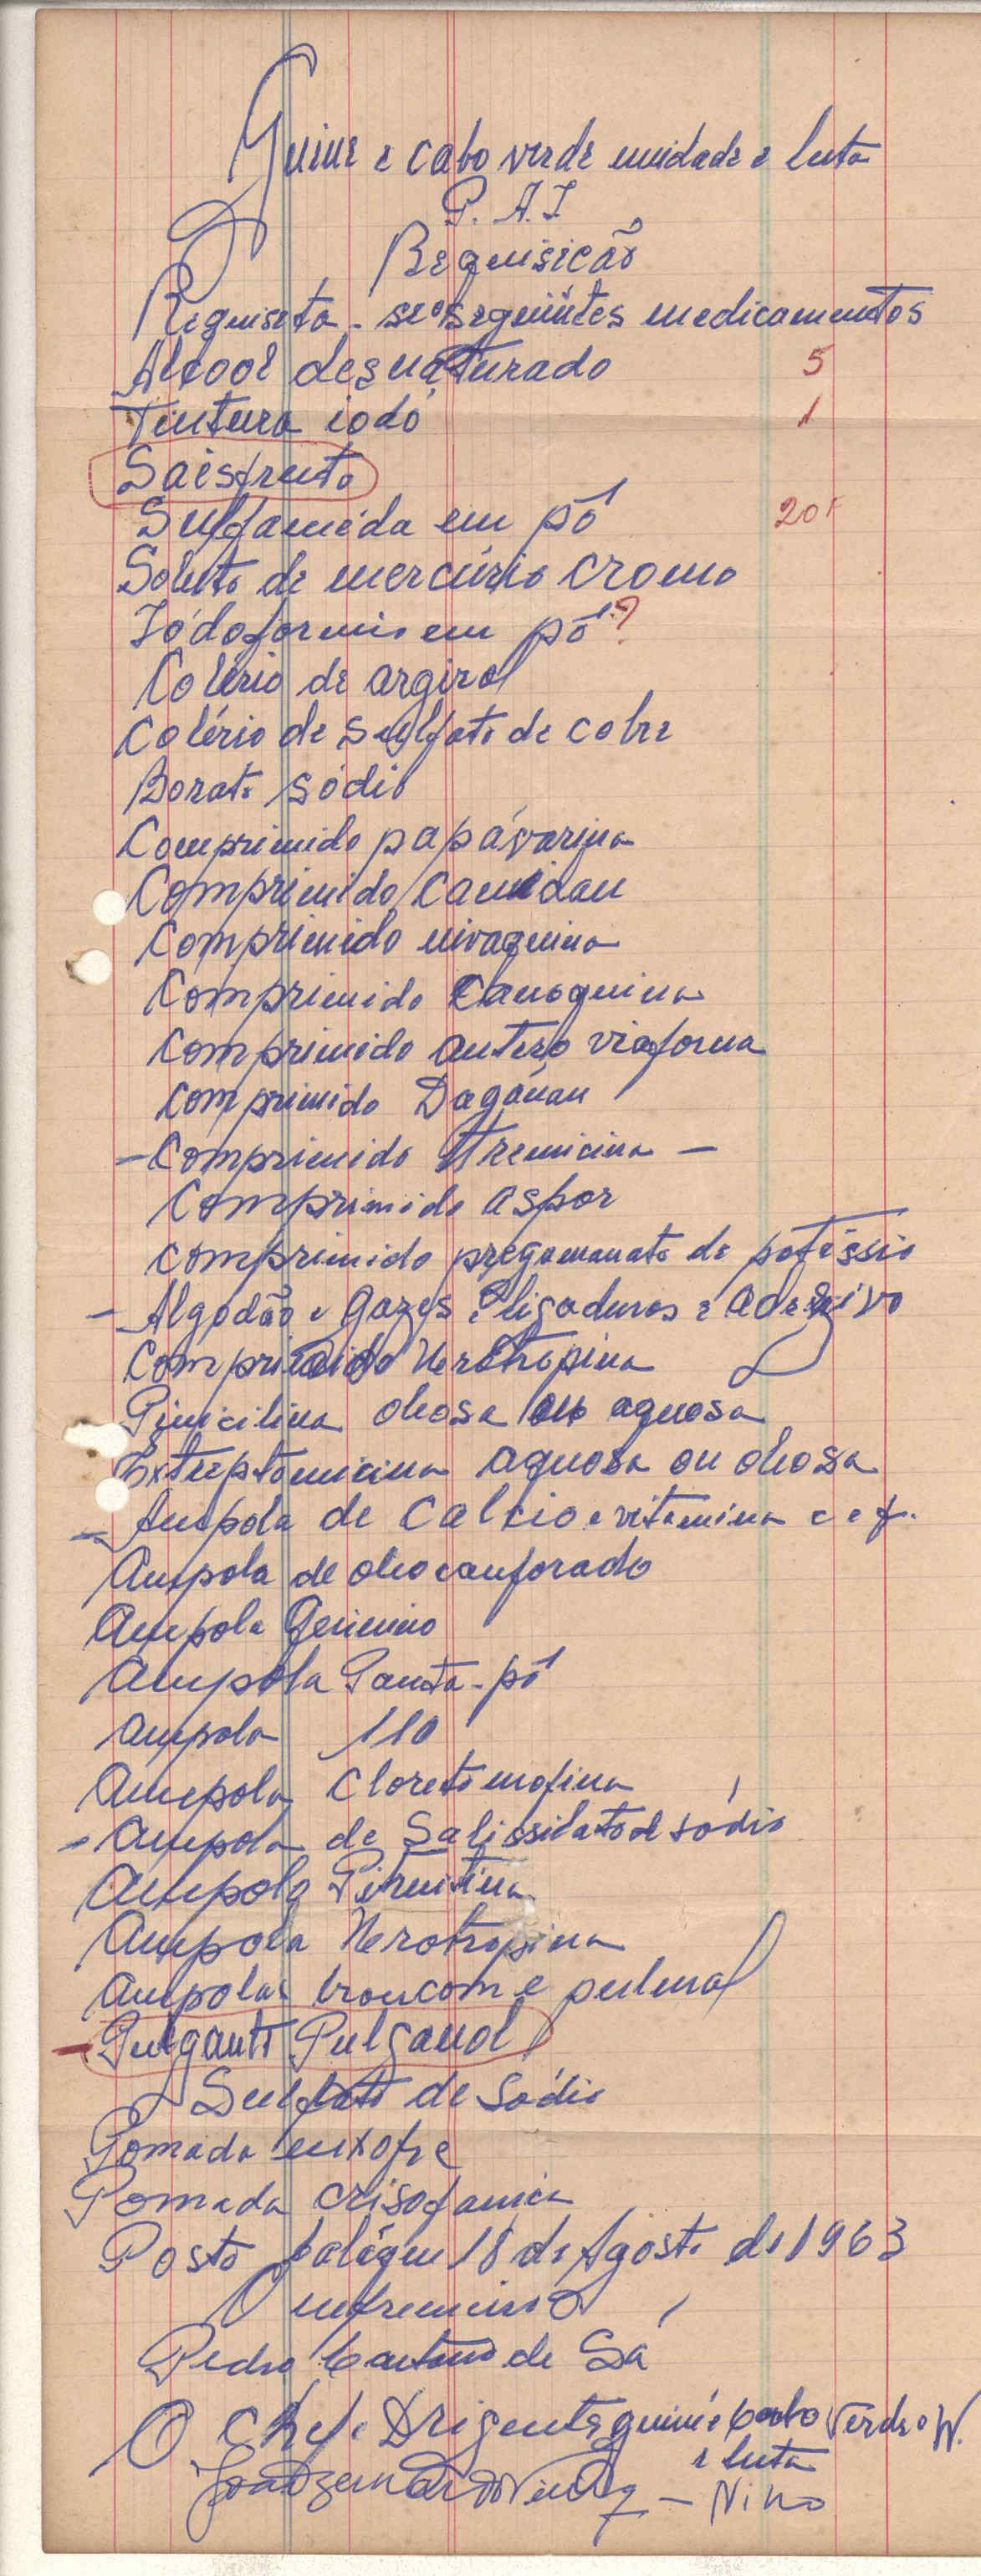 Guine e cabo verde unidade e luta
P. A. I
Requisicão
Requisita-se os seguintes medicamentos
Alcool desnaturado 5
Tintura iodo 1
Saisfruto
Sulfamida em pó 20
Soluto de mercúrio cromo
Iódoformio em pó ?
Colírio de argirol
Colírio de sulfato de cobre
Borato sódio
Comprimido papávarina
Comprimido
Comprimido nivaquina
Comprimido Camoquina
Comprimido antero vioforma
Comprimido Dagánan
- Comprimido -
Comprimido aspor
Comprimido de potássio
- Algodão e gazes e ligaduras e adesivo
Comprimido Nerotropina
Pinicilina oliosa ou aquosa
Extreptomicina aquosa ou oliosa
- Ampola de Calcio e vitamina c e
Ampola de olio canforado
Ampola
Ampola Panta-pó
Ampola 110
Ampola Cloreto mofina
- Ampola de Salissilato de sódio
Ampola
Ampola Nerotropina
Ampolas broncom e pulmal
- Purgante
Sulfato de Sódio
Pomada enxofre
Pomada crisofanica
Posto 18 de Agosto de 1963
O enfremeiro
Pedro Caetano de Sá
O Chefe Drigente guiné Cabo Verde e
e luta
João Bernardo Vieira - Nino